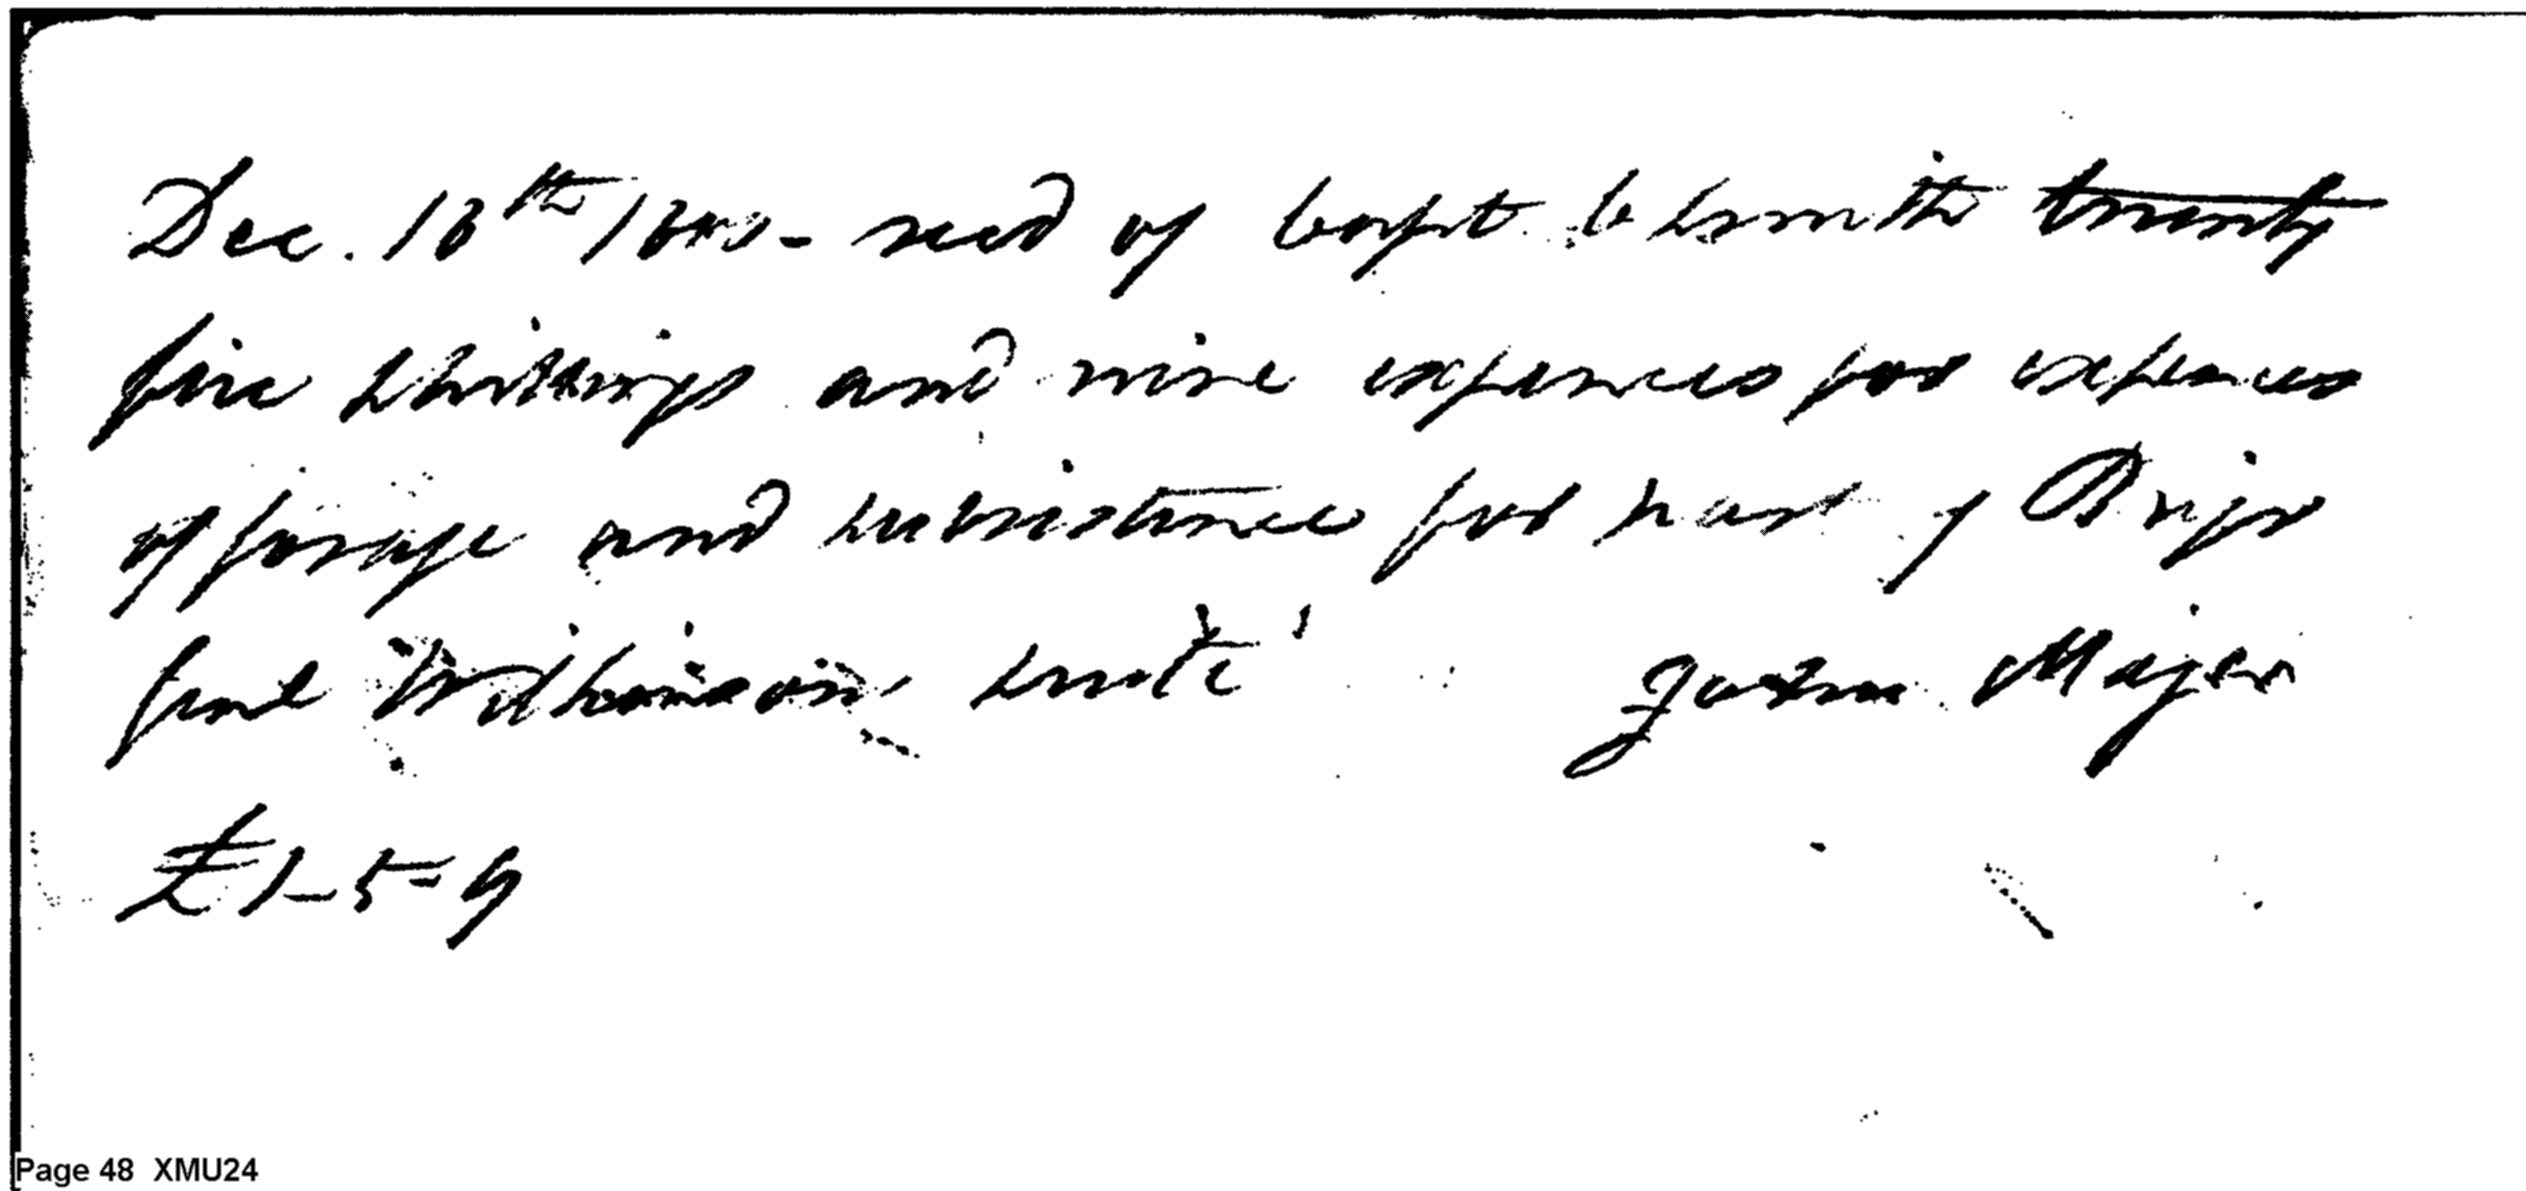 Dec. 18th recd of Capt. C Smith twenty
five shillings and nine expences for expences
of forage and subsistance for part of Brigr
Genl Wilkinson suite John Majer
£1-5-9
Page 48 XMU24